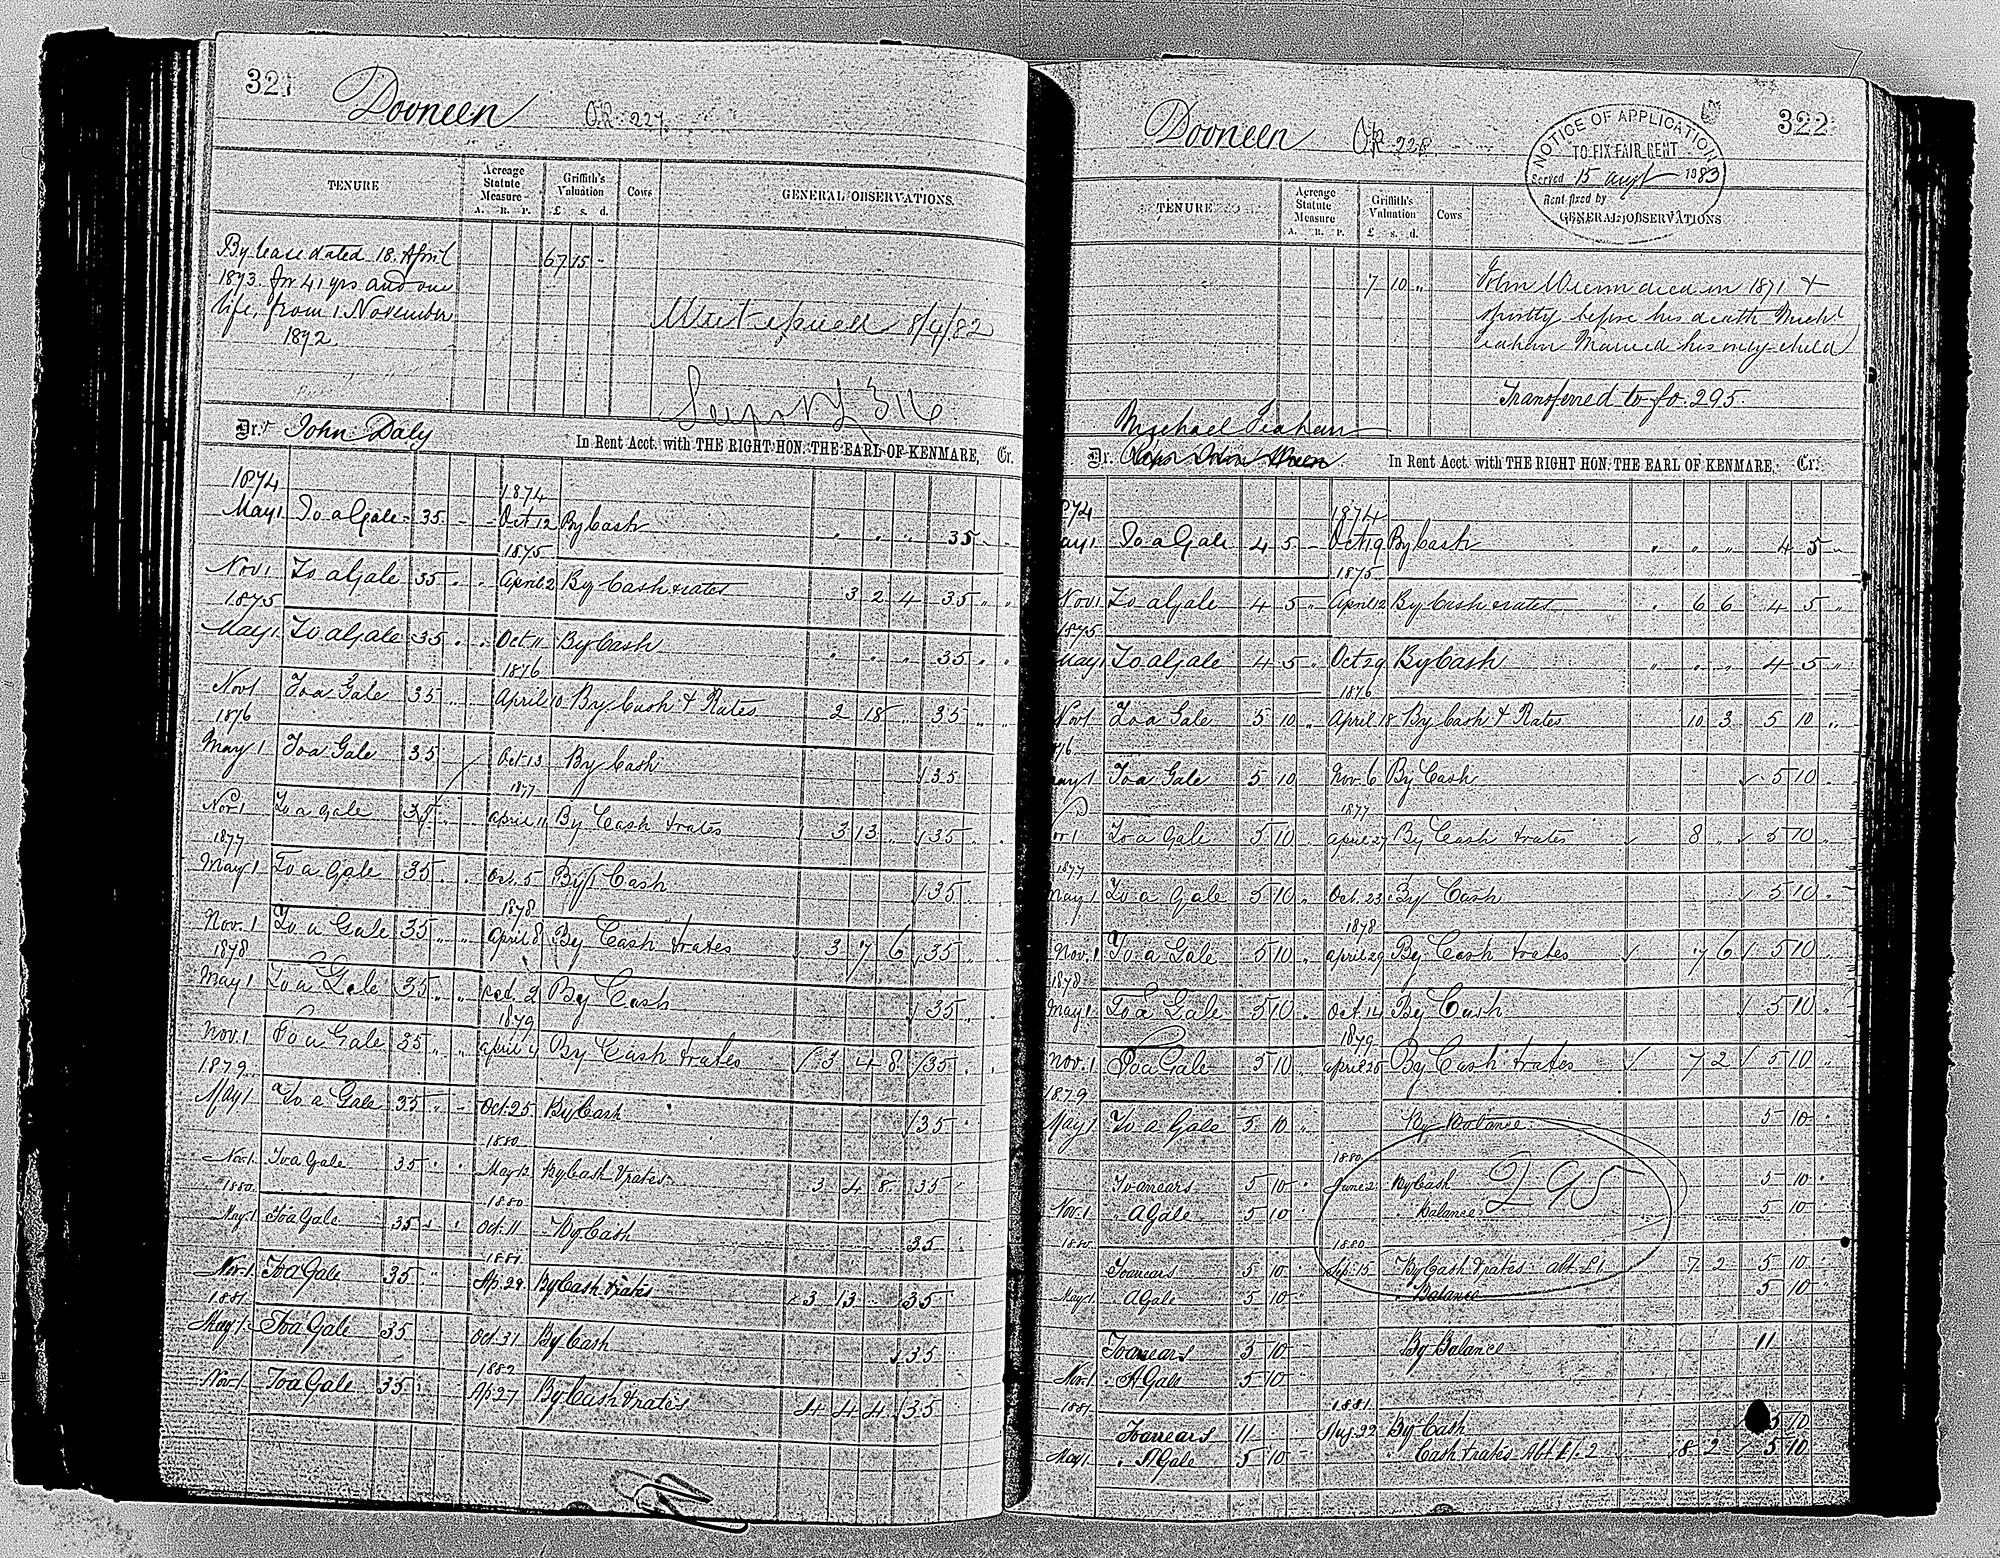 321
Dooneen O.R. 227
TENURE
Acreage Statute Measure
A. R. P.
Griffith's Valuation
£ s. d.
Cows
GENERAL OBSERVATIONS.
By lease dated 18. April
1873 for 41 yrs and one
life, from 1. November
1892
67 15 -
8/4/82
316
Dr. John Daly In Rent Acct. with THE RIGHT HON. THE EARL OF KENMARE, Cr.
1874 1874
May 1 To a Gale 35 - - Oct 12 By Cash " " " 35 - -
1875
Nov 1 To a Gale 35 " " April 2 By Cash & rates 3 2 4 35 " "
1875
May 1 To a Gale 35 " " Oct 11 By Cash " " " 35 " "
1876
Nov 1 To a Gale 35 " " April 10 By Cash & Rates 2 18 " 35 " "
1876
May 1 To a Gale 35 Oct. 13 By Cash 35
1877
Nov. 1 To a Gale 35 " " April 11 By Cash & rates 3 13 " 35 " "
1877
May 1 To a Gale 35 " " Oct. 5 By Cash 35 "
1878
Nov. 1 To a Gale 35 " " April 8 By Cash & rates 3 7 6 35 " "
1878
May 1 To a Gale 35 " " Oct. 2 By Cash 35 " "
1879
Nov. 1 To a Gale 35 " " April 4 By Cash & rates 3 4 8 35 " "
1879
May 1 To a Gale 35 " - Oct. 25 By Cash 35 "
1880
Nov. 1 To a Gale 35 " " May 12 By Cash & rates 3 4 8 35 "
1880 1880
May 1 To a Gale 35 " " Oct. 11 By Cash 35
1881
Nov. 1 To a Gale 35 " " Ap. 29 By Cash & rates 3 13 35
1881
May 1 To a Gale 35 Oct. 31 By Cash 35
1882
Nov. 1 To a Gale 35 Ap. 27 By Cash & rates 4 4 4 35
322
Dooneen O.R. 228
NOTICE OF APPLICATION
TO FIX FAIR RENT
Served 15 Augt 1883
Rent fixed by
TENURE
Acreage Statute Measure
A. R. P.
Griffith's Valuation
£ s. d.
Cows
GENERAL OBSERVATIONS
7 10 "
John Wrenn died in 1871 &
shortly before his death Michl
Leahan Married his only child
Transferred to fo. 295.
Michael Leahan
Dr. In Rent Acct. with THE RIGHT HON. THE EARL OF KENMARE, Cr.
874 1874
ay 1 To a Gale 4 5 - Oct 19 By Cash " " " 4 5 "
1875
Nov 1 To a Gale 4 5 " April 12 By Cash & rates " 6 6 4 5 "
1875
May 1 To a Gale 4 5 " Oct 29 By Cash " " " 4 5 "
1876
Nov 1 To a Gale 5 10 " April 18 By Cash & Rates 10 3 5 10 "
76
ay 1 To a Gale 5 10 Nov. 6 By Cash 5 10
1877
ov 1 To a Gale 5 10 " April 27 By Cash & rates 8 " 5 10 "
1877
May 1 To a Gale 5 10 " Oct. 23 By Cash 5 10 "
1878
Nov. 1 To a Gale 5 10 " April 29 By Cash & rates 7 6 5 10 "
1878
May 1 To a Gale 5 10 " Oct. 14 By Cash 5 10 "
1879
Nov. 1 To a Gale 5 10 " April 25 By Cash & rates 7 2 5 10 "
1879
May 1 To a Gale 5 10 " By Balance 5 10 "
1880
To arrears 5 10 " June 2 By Cash 5 10 "
295
Nov. 1 " A Gale 5 10 " " Balance 5 10 "
1880 1880
To arrears 5 10 " Sep. 15 By Cash & rates Abt. £1 7 2 5 10 "
May 1 A Gale 5 10 " " Balance 5 10 "
To arrears 5 10 By Balance 11
Nov. 1 " A Gale 5 10
1881 1881
To arrears 11 Aug. 22 By Cash 5 10
May 1 " A Gale 5 10 - Cash & rates Abt. 8 2 5 10